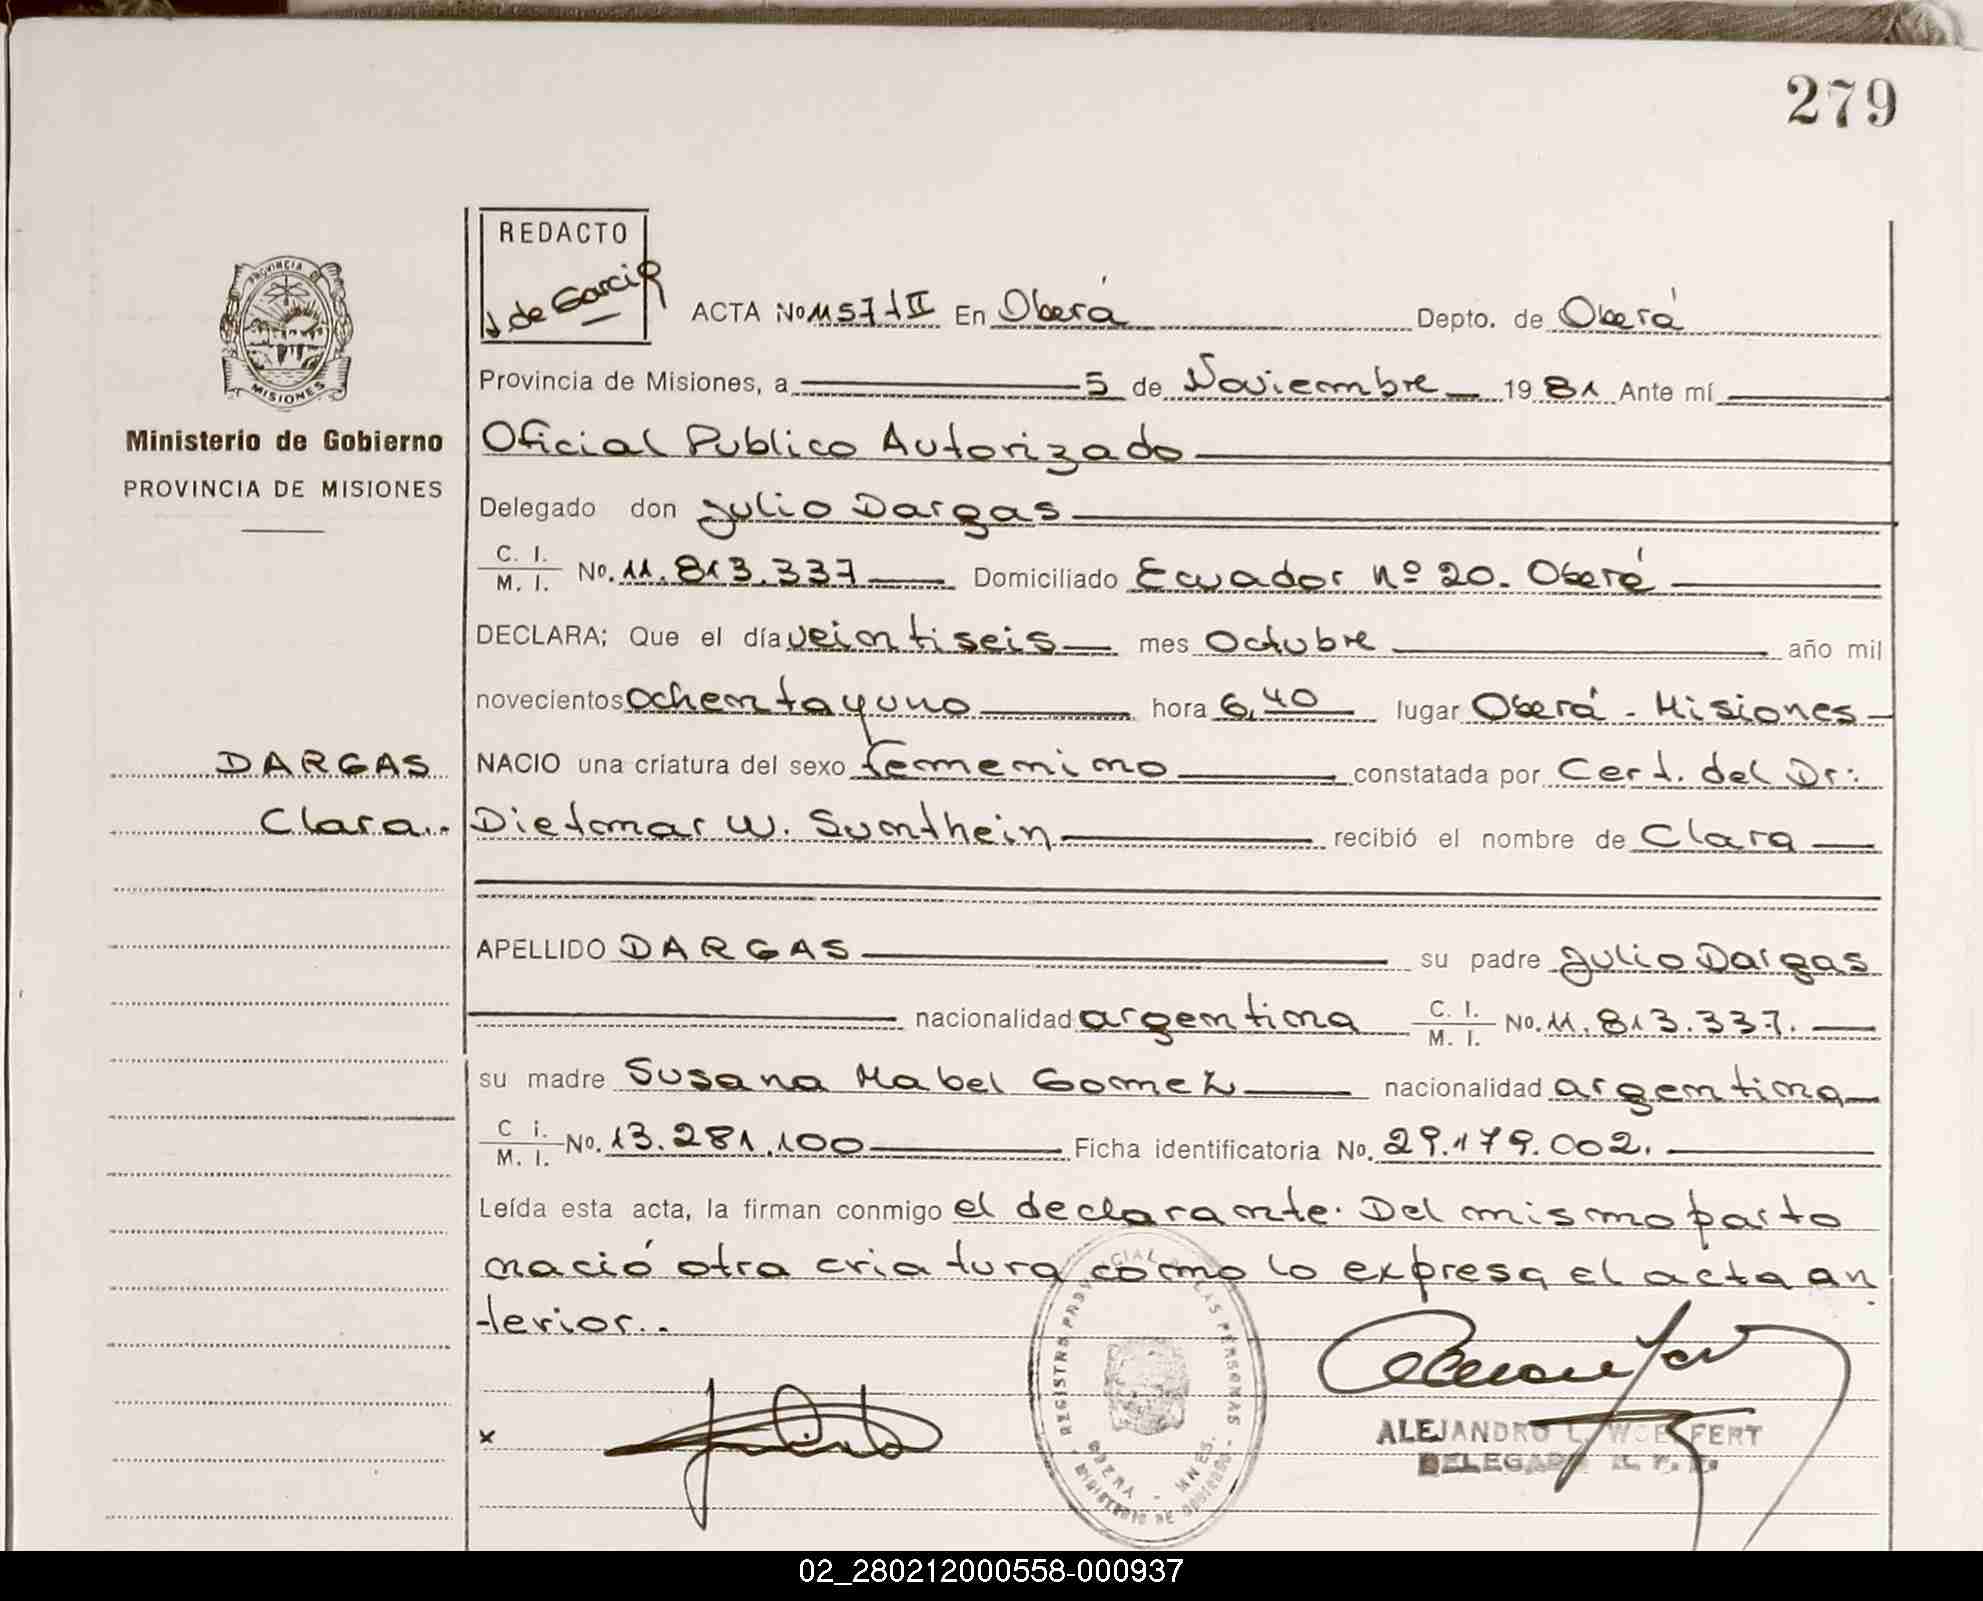 279
REDACTO
J. de Garcia
PROVINCIA DE
MISIONES
ACTA No 1157 tII En Oberá Depto. de Oberá
Provincia de Misiones, a 5 de Noviembre 1981 Ante mí
Ministerio de Gobierno
PROVINCIA DE MISIONES
Oficial Publico Autorizado
Delegado don Julio Dargas
C. I. / M. I. No. 11.813.337 Domiciliado Ecuador nº 20. Oberá
DECLARA; Que el día veintiseis mes Octubre año mil
novecientos ochenta y uno hora 6,40 lugar Oberá - Misiones
DARGAS
Clara..
NACIO una criatura del sexo femenino constatada por Cert. del Dr:
Dietmar W. Sumthein recibió el nombre de Clara
APELLIDO DARGAS su padre Julio Dargas
nacionalidad argentina C. I. / M. I. No. 11.813.337.
su madre Susana Mabel Gomez nacionalidad argentina
C i. / M. I. No. 13.281.100 Ficha identificatoria No. 29.179.002.
Leída esta acta, la firman conmigo el declarante. Del mismo parto
nació otra criatura como lo expresa el acta an
terior..
x
REGISTRO PROVINCIAL DE LAS PERSONAS
OBERA - MNES.
MINISTERIO DE GOBIERNO
ALEJANDRO L. WOELFERT
DELEGADO R. P. P.
02_280212000558-000937